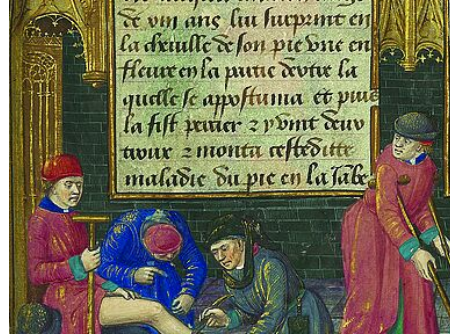 de viii ans lui surprint en
la cheuille de son pie vne en
fleure en la partie dextre la
quelle se appostuma et puis
la fist percier z y vint deux
troux z monta ceste ditte
maladie du pie en la Jabe